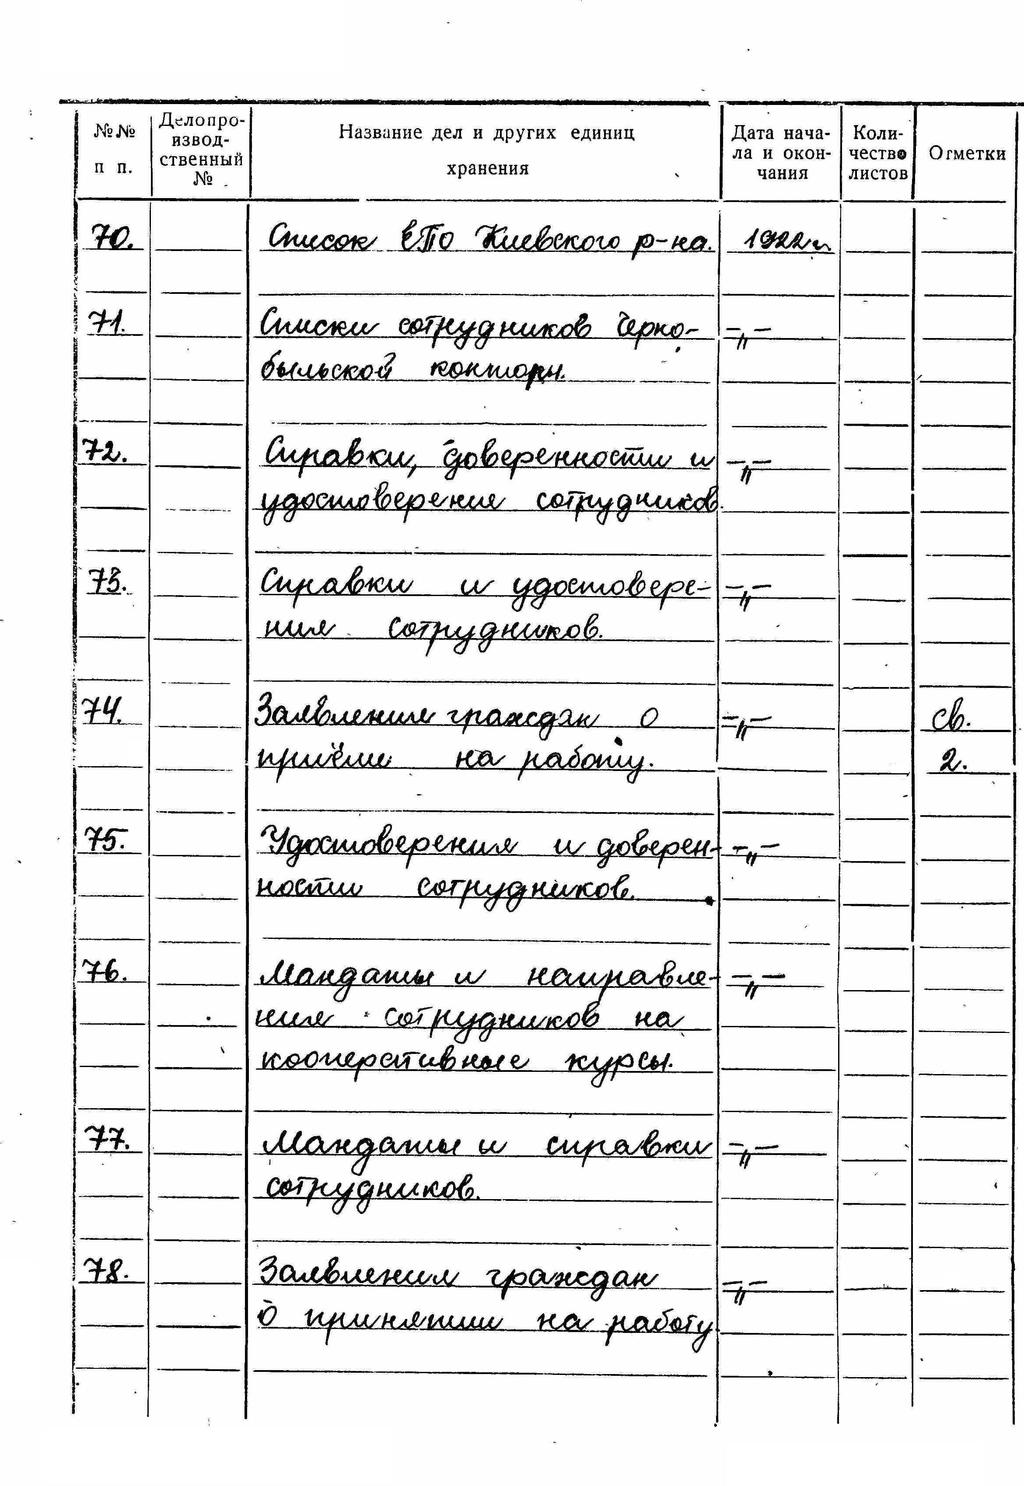 №№ п п.
Делопроизвод-
ственный №
Название дел и других единиц
хранения
Дата нача-
ла и окон-
чания
Коли-
чество
листов
Отметки
70. Список ЕПО Киевского р-на. 1922 г.
71. Списки сотрудников Черно- -"-
быльской конторы.
72. Справки, доверенности и -"-
удостоверения сотрудников.
73. Справки и удостовере- -"-
ния сотрудников.
74. Заявления граждан о -"- св.
приёме на работу. 2.
75. Удостоверения и доверен- -"-
ности сотрудников.
76. Мандаты и направле- -"-
ния сотрудников на
кооперативные курсы.
77. Мандаты и справки -"-
сотрудников.
78. Заявления граждан -"-
о принятии на работу